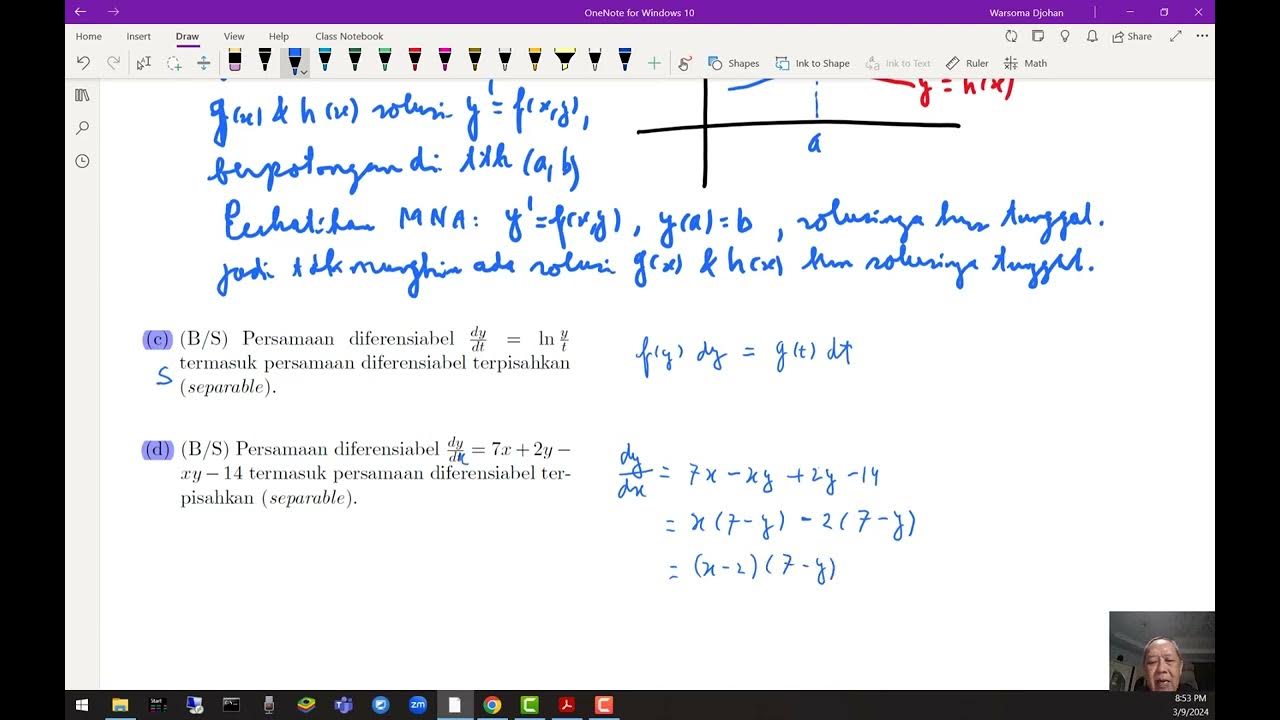 OneNote for Windows 10
Warsoma Djohan
Home Insert Draw View Help Class Notebook
Share
Shapes Ink to Shape Ink to Text Ruler Math
g(x) & h(x) solusi y' = f(x,y),
y = h(x)
berpotongan di ttk (a,b)
a
Perhatikan MNA: y' = f(x,y), y(a) = b, solusinya hrs tunggal.
jadi tdk mungkin ada solusi g(x) & h(x) krn solusinya tunggal.
(c) (B/S) Persamaan diferensiabel dy/dt = ln y/t
termasuk persamaan diferensiabel terpisahkan
(separable).
S
f(y) dy = g(t) dt
(d) (B/S) Persamaan diferensiabel dy/dx = 7x + 2y −
xy − 14 termasuk persamaan diferensiabel ter-
pisahkan (separable).
dy/dx = 7x − xy + 2y − 14
= x(7 − y) − 2(7 − y)
= (x − 2)(7 − y)
8:53 PM
3/9/2024